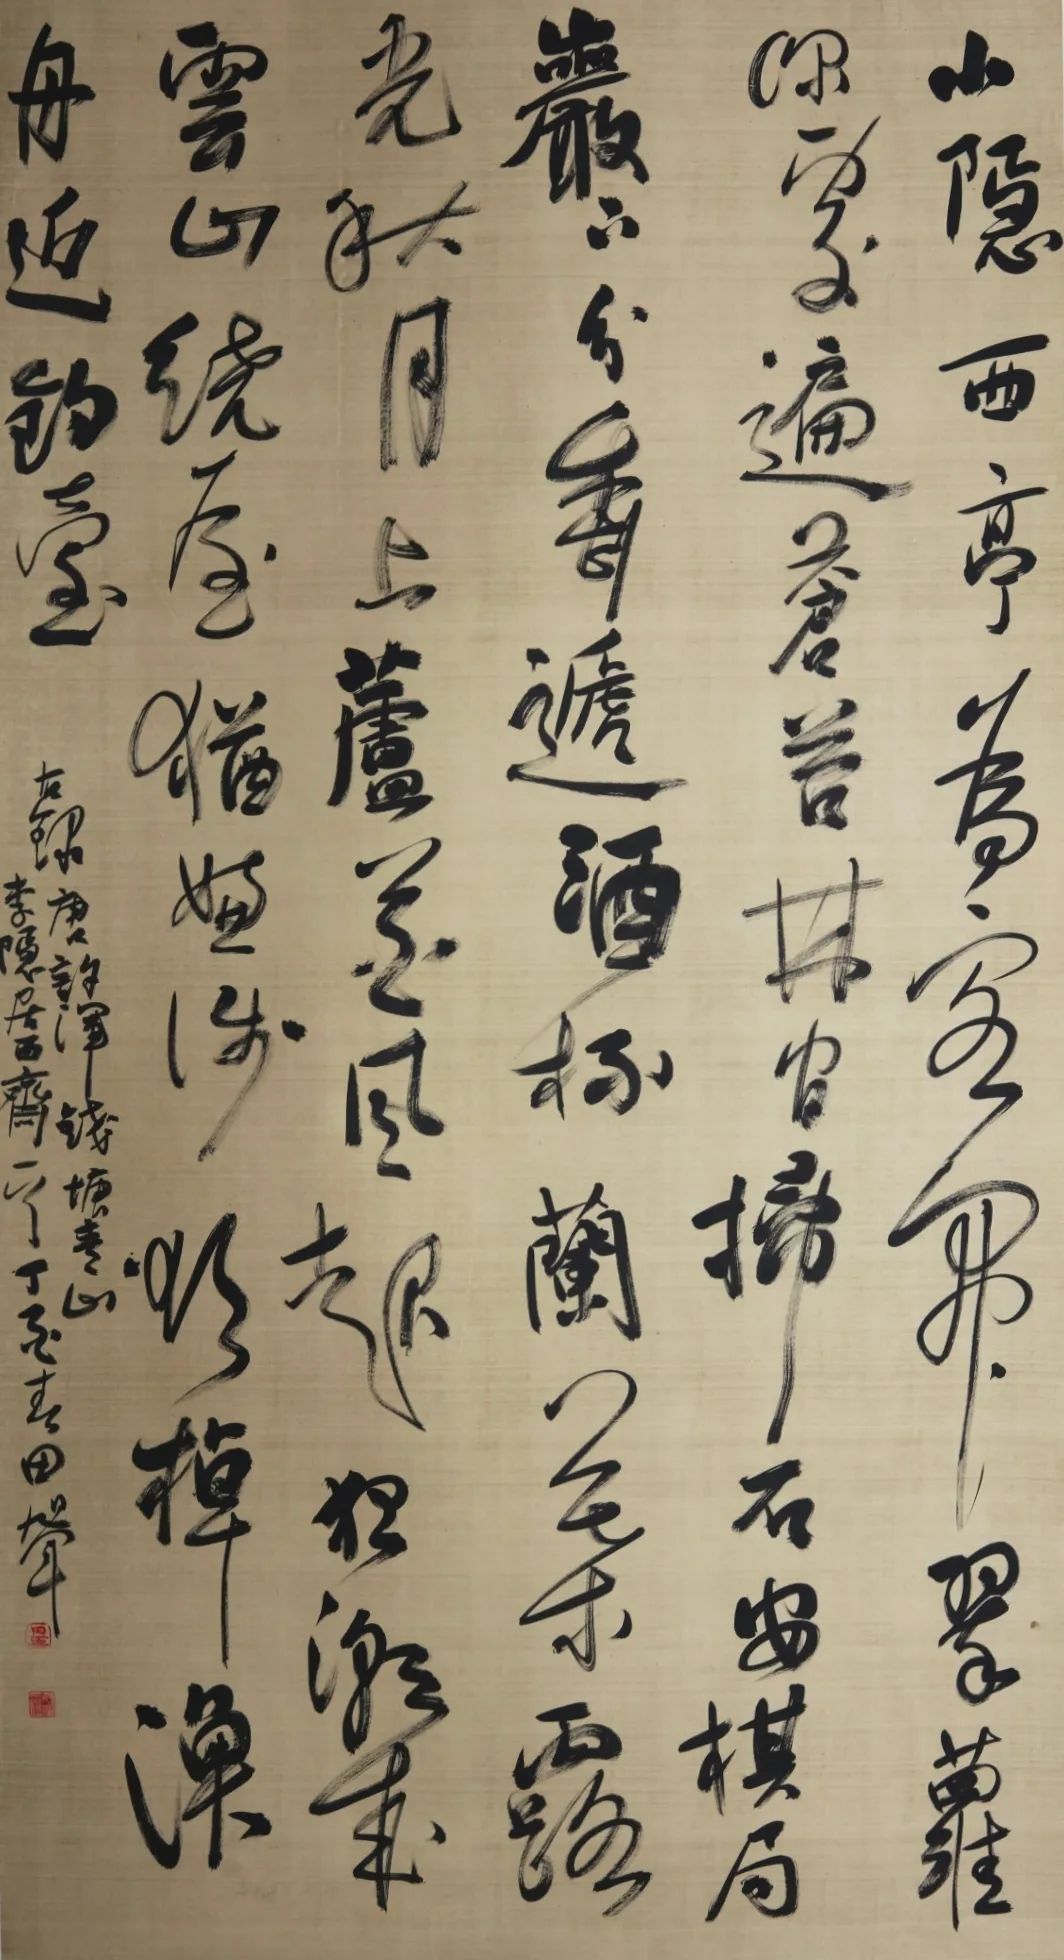 小隱西亭為客開翠蘿
深處遍蒼苔林間掃石安棋局
巖下分香遞酒杯蘭葉露
光秋月上蘆花風起夜潮來
雲山繞屋猶嫌淺欲棹漁
舟近釣臺
右錄唐許渾錢塘青山
李隱居西齋一首丁酉春田